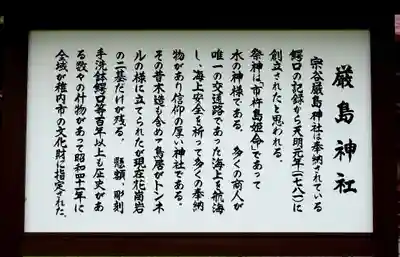 厳島神社
宗谷厳島神社は奉納されている
鰐口の記録から天明元年(一七八一)に
創立されたと思われる。
祭神は「市杵島姫命」であって
水の神様である。多くの商人が
唯一の交通路であった海上を航海
し、海上安全を祈って多くの奉納
物があり信仰の厚い神社である。
その昔木造も含めって鳥居がトンネ
ルの様に立てられたが現在花崗岩
の二基だけが残る。懸額、彫刻
手洗鉢鰐口等百年以上も歴史があ
る数々の什物があって昭和四十一年に
全域が稚内市の文化財に指定された。